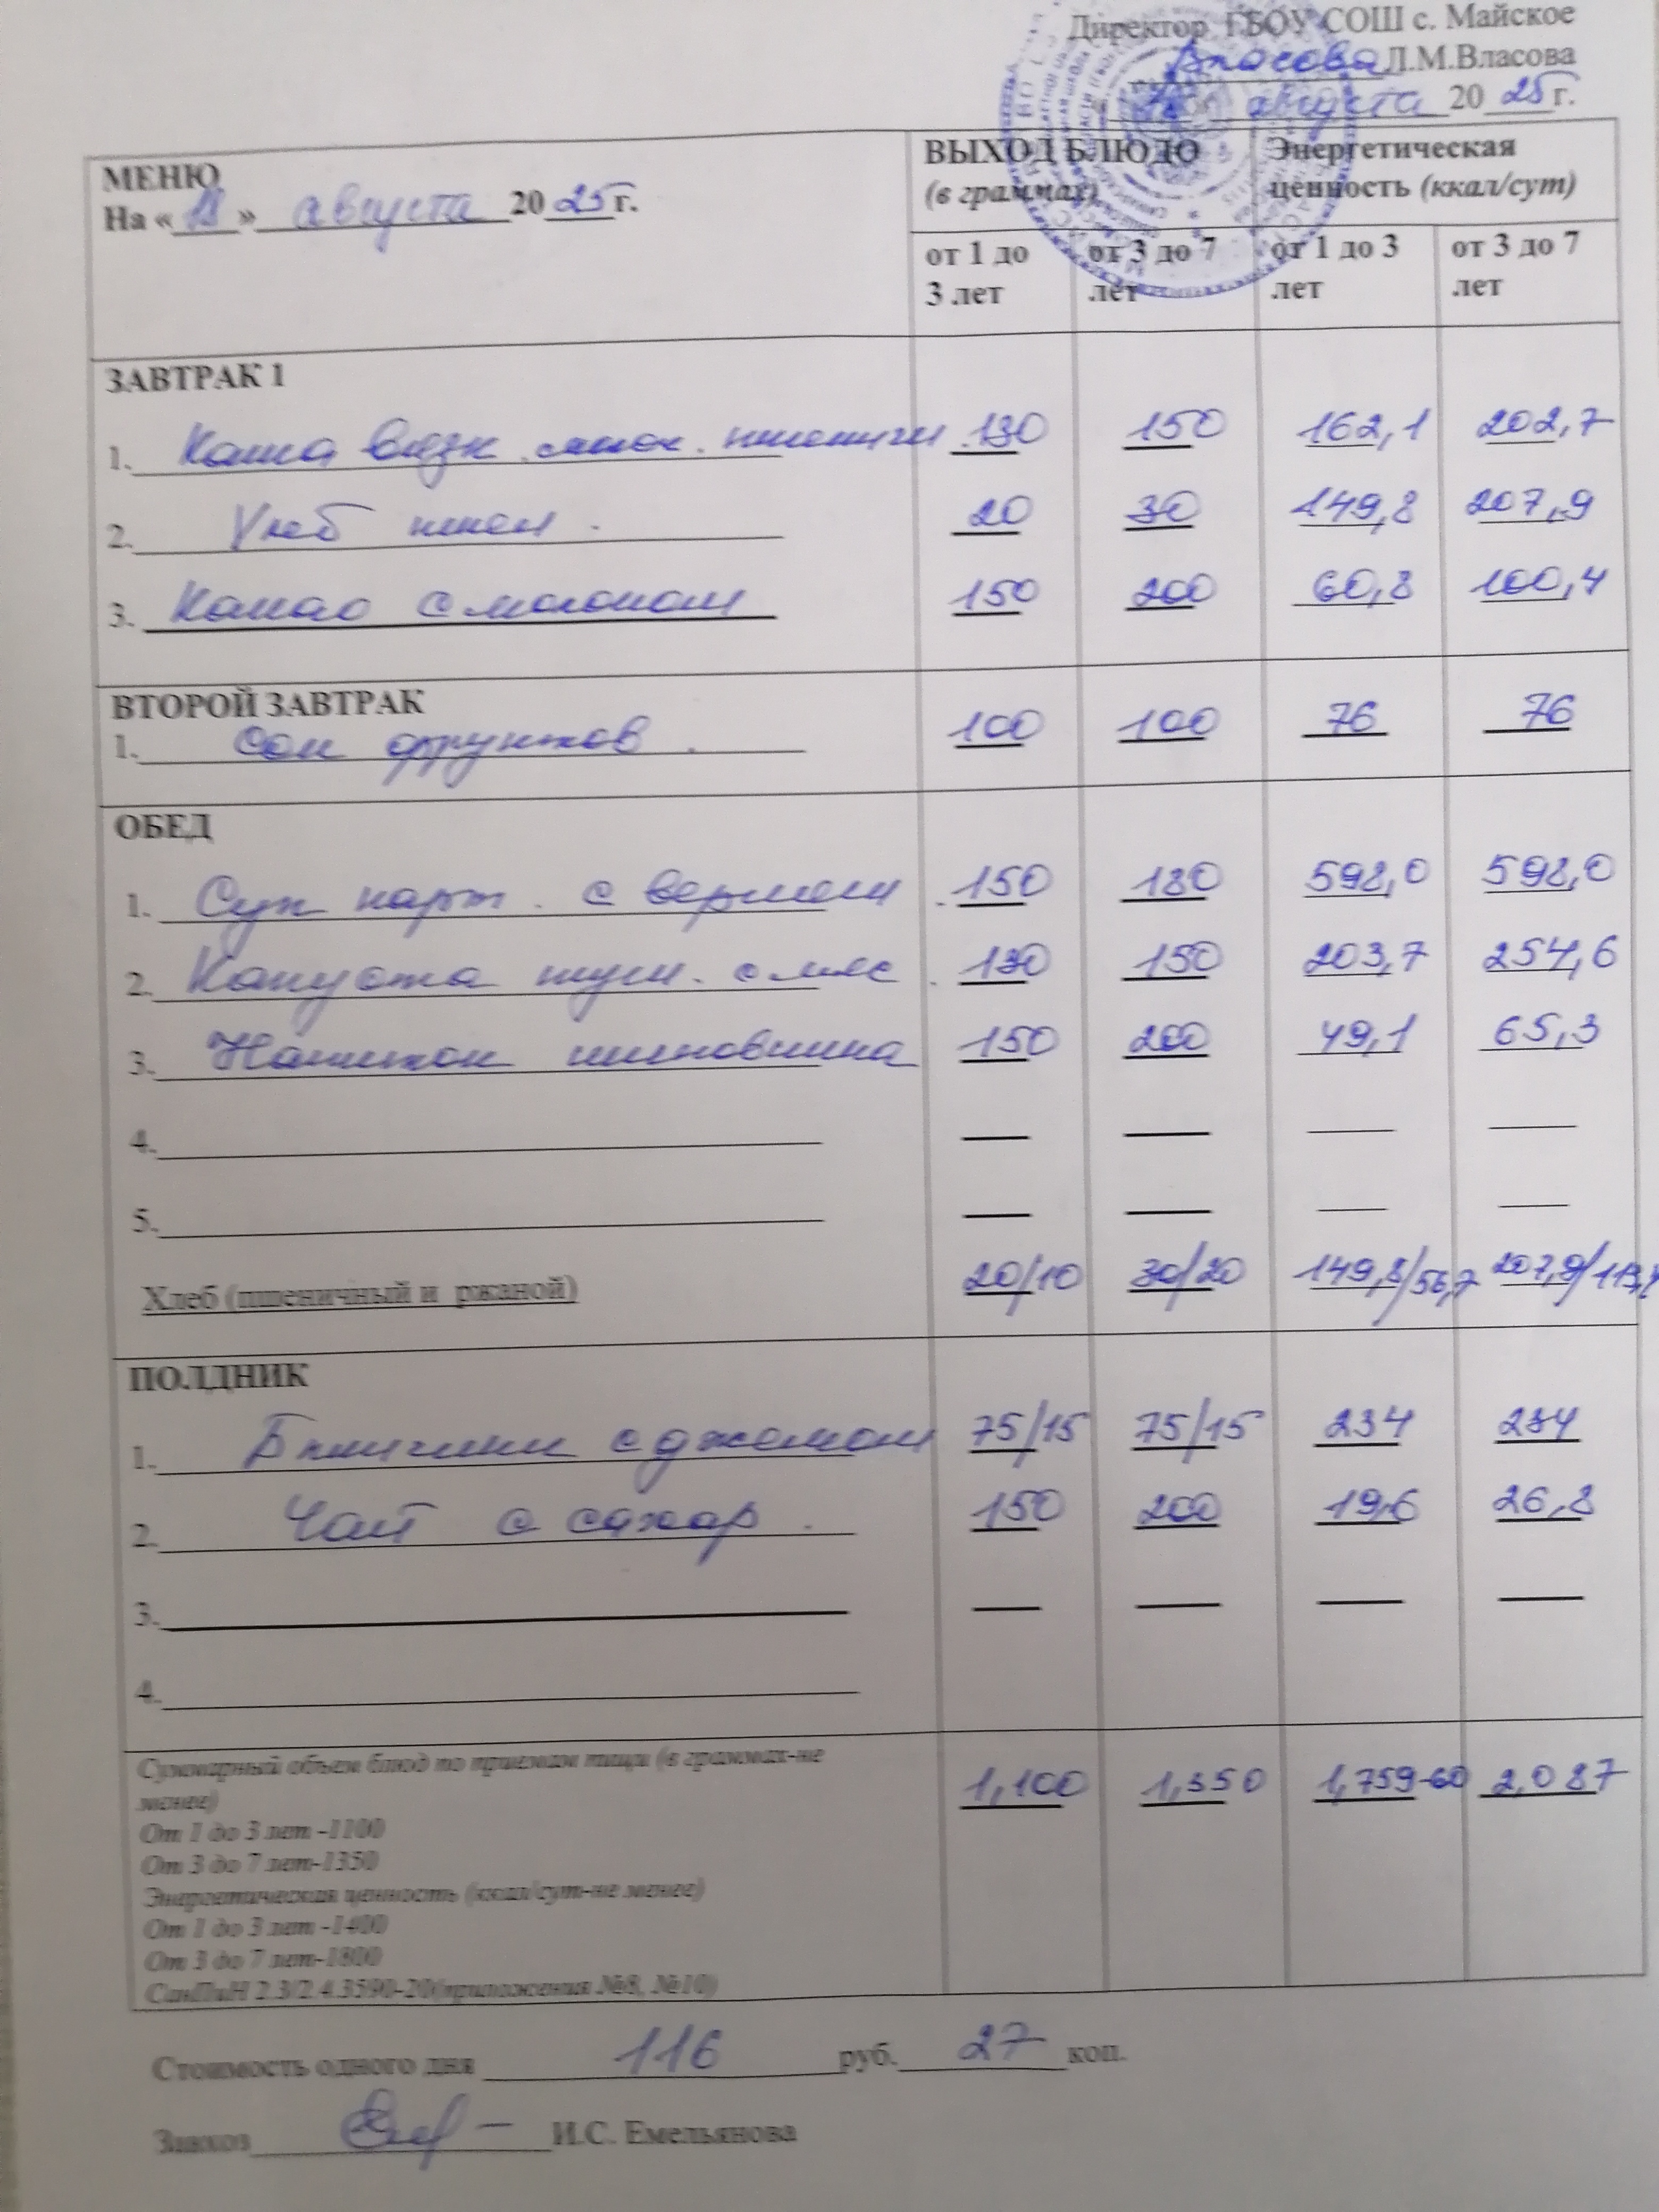 Директор ГБОУ СОШ с. Майское
Власова Л.М.Власова
августа 20 25 г.
МЕНЮ
На «18» августа 20 25 г.
ВЫХОД БЛЮДО (в граммах)
Энергетическая ценность (ккал/сут)
от 1 до 3 лет
от 3 до 7 лет
от 1 до 3 лет
от 3 до 7 лет
ЗАВТРАК 1
1. Каша вязк. молоч. пшеничн 130 150 162,1 202,7
2. Хлеб пшен. 20 30 149,8 207,9
3. Какао с молоком 150 200 60,8 100,4
ВТОРОЙ ЗАВТРАК
1. Сок фруктов. 100 100 76 76
ОБЕД
1. Суп карт. с вермеш. 150 180 598,0 598,0
2. Капуста туш. с мяс. 130 150 203,7 254,6
3. Напиток шиповника 150 200 49,1 65,3
4.
5.
Хлеб (пшеничный и ржаной) 20/10 30/20 149,8/56,7 207,9/113,4
ПОЛДНИК
1. Блинчики с джемом 75/15 75/15 234 234
2. Чай с сахар. 150 200 19,6 26,8
3.
4.
Суммарный объем блюд по приемам пищи (в граммах-не 1,100 1,350 1,759-60 2,087
менее)
От 1 до 3 лет -1100
От 3 до 7 лет-1350
Энергетическая ценность (ккал/сут-не менее)
От 1 до 3 лет -1400
От 3 до 7 лет-1800
СанПиН 2.3/2.4.3590-20(приложения №8, №10)
Стоимость одного дня 116 руб. 27 коп.
Завхоз И.С. Емельянова